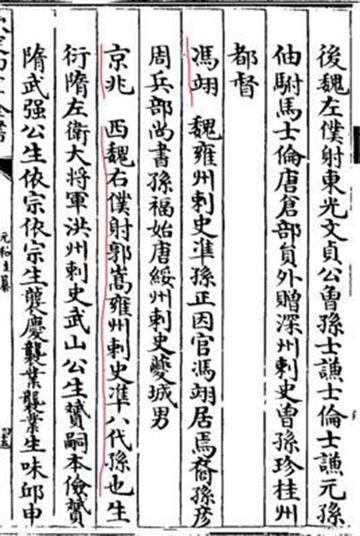 後魏左僕射東光文貞公魯孫士謙士倫士謙元孫
伷駙馬士倫唐倉部員外贈深州刺史曾孫珍桂州
都督
馮翊　魏雍州刺史準孫正因官馮翊居焉裔孫彦
周兵部尚書孫福始唐綏州刺史夔城男
京兆　西魏右僕射郭嵩雍州刺史準八代孫也生
衍隋左衛大將軍洪州刺史武山公生贊嗣本儉贊
隋武强公生依宗依宗生襲慶襲業襲業生味邱申
元和姓纂